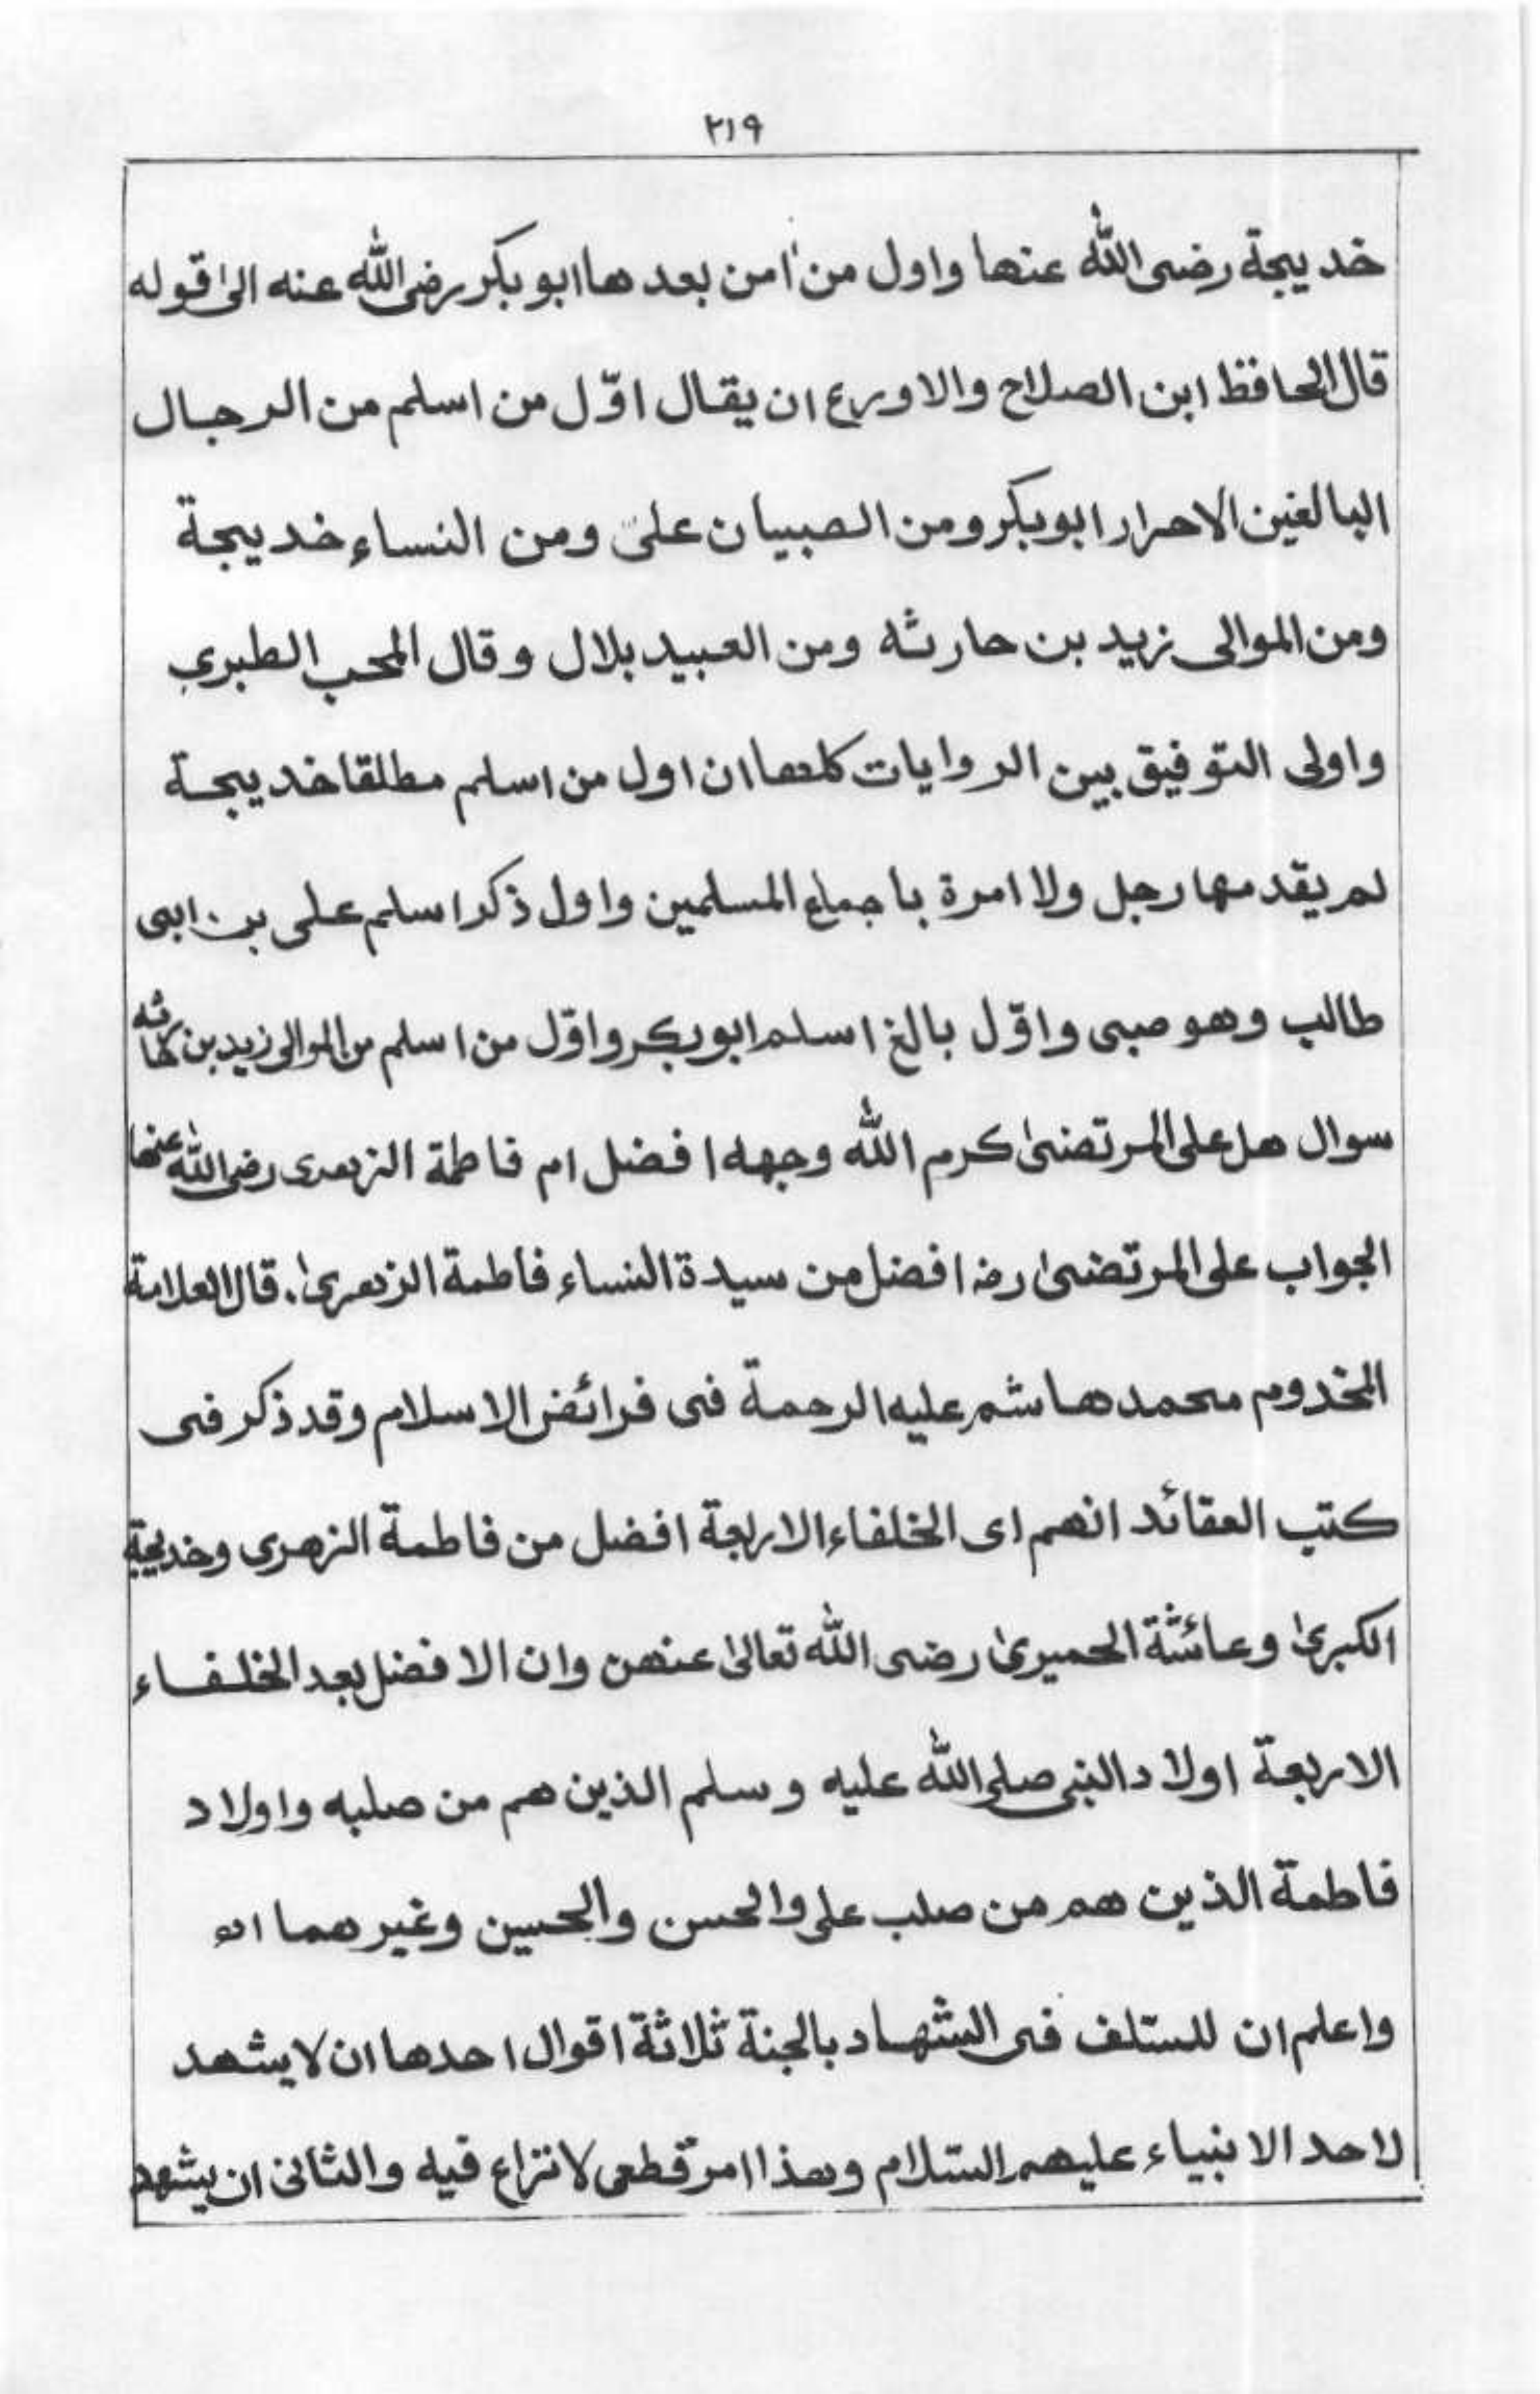 ٢١٩
خديجة رضى الله عنها واول من اٰمن بعدها ابو بكر رضى الله عنه الىٰ قوله
قال الحافظ ابن الصلاح والاورع ان يقال اوّل من اسلم من الرجال
البالغين الاحرار ابو بكر ومن الصبيان على ومن النساء خديجة
ومن الموالى زيد بن حارثه ومن العبيد بلال وقال المحب الطبرى
واولى التوفيق بين الروايات كلها ان اول من اسلم مطلقا خديجة
لم يقدمها رجل ولا امرة باجماع المسلمين واول ذكر اسلم على بن ابى
طالب وهو صبى واوّل بالغ اسلم ابو بكر واوّل من اسلم من الموالى زيد بن حارثه
سوال هل على المرتضىٰ كرم الله وجهه افضل ام فاطمة الزهرى رضى الله عنها
الجواب على المرتضىٰ رضه افضل من سيدة النساء فاطمة الزهرىٰ. قال العلامة
المخدوم محمد هاشم عليه الرحمة فى فرائض الاسلام وقد ذكر فى
كتب العقائد انهم اى الخلفاء الاربعة افضل من فاطمة الزهرى وخديجة
الكبرىٰ وعائشة الحميرىٰ رضى الله تعالىٰ عنهن وان الافضل بعد الخلفاء
الاربعة اولاد النبى صلى الله عليه وسلم الذين هم من صلبه واولاد
فاطمة الذين هم من صلب على والحسن والحسين وغيرهما اه
واعلم ان للسّلف فى الشهاد بالجنة ثلاثة اقوال احدها ان لا يشهد
لاحد الا نبياء عليهم السّلام وهذا امر قطعى لا نزاع فيه والثانى ان يشهد